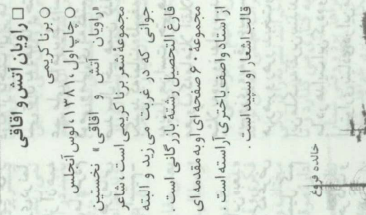 □ راویان آتش و اقاقی
○ برنا کریمی
○ چاپ اول، ۱۳۸۱، لوس آنجلس
«راویان آتش و اقاقی» نخستین
مجموعهٔ شعر برنا کریمی است. شاعر
جوانی که در غربت می زید و البته
فارغ التحصیل رشتهٔ بازرگانی است.
مجموعهٔ ۶۰ صفحه ای او به مقدمه ای
از استاد واصف باختری آراسته است.
قالب اشعار او سپید است.
خالده فروغ